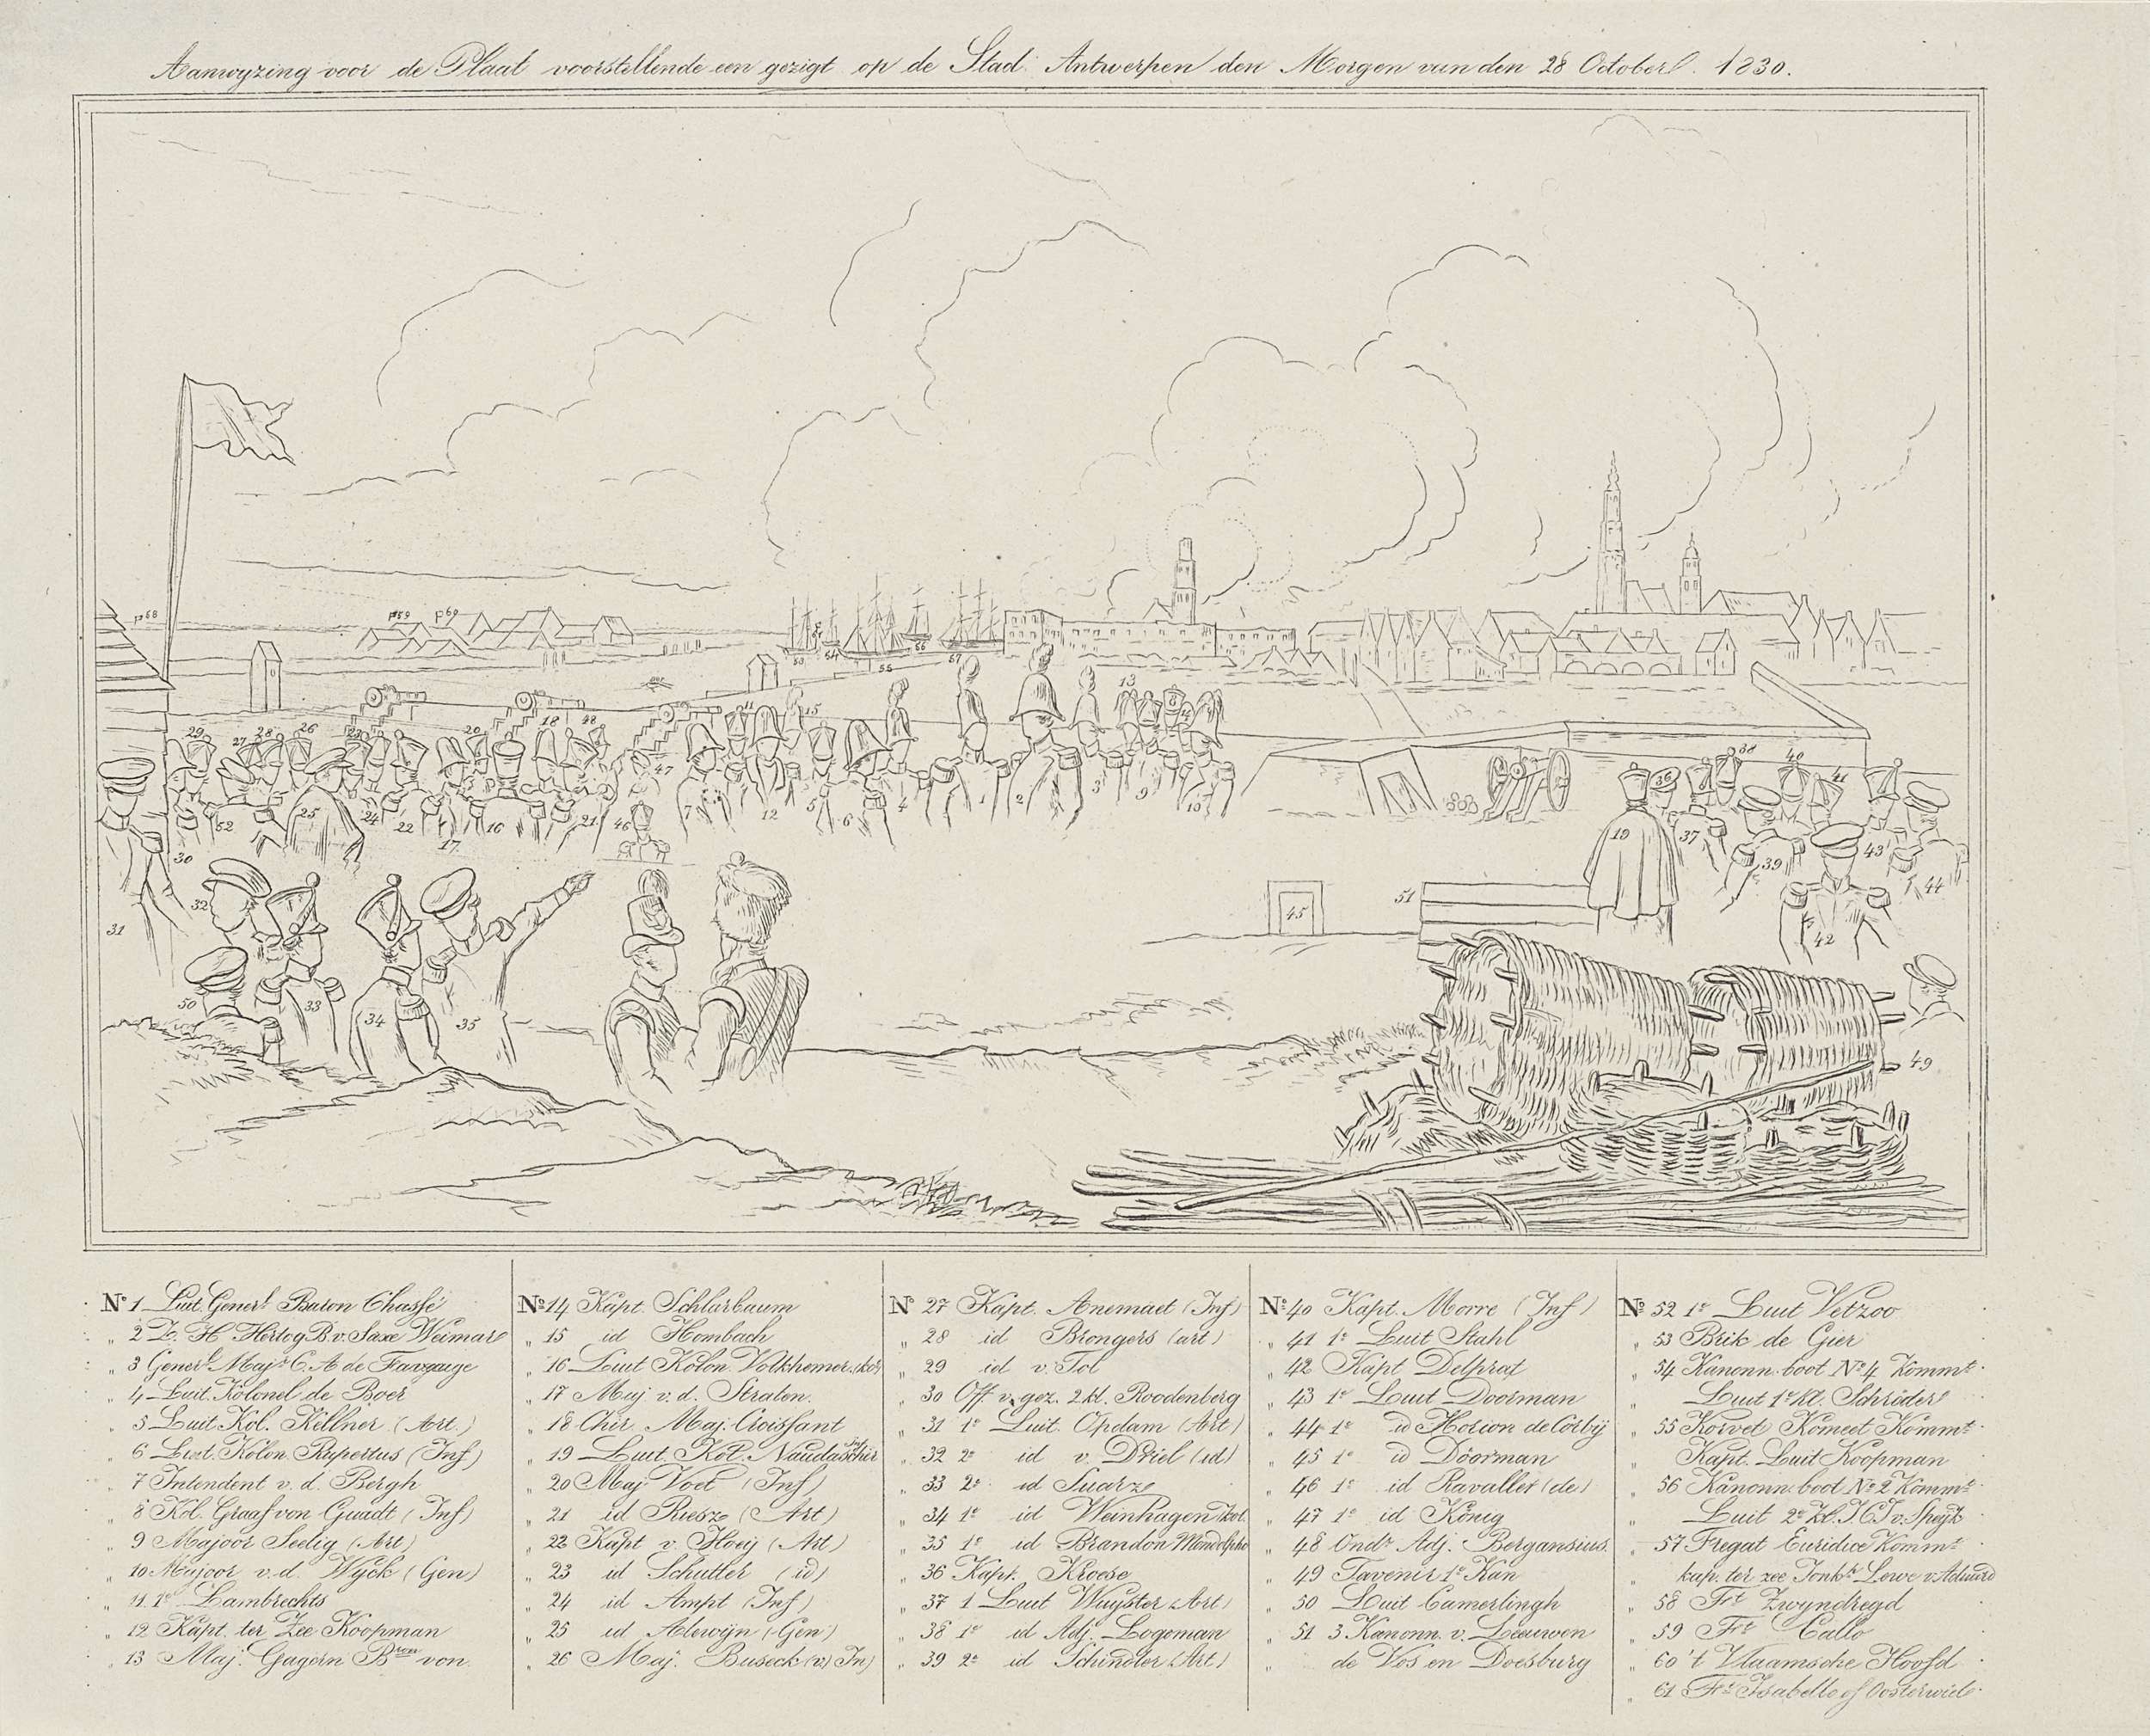 Aanwyzing voor de Plaat voorstellende een gezigt op de Stad Antwerpen den Morgen van den 28 October 1830.
No 1 Luit. Generl. Baron Chassé
„ 2 Z. H. Hertog B. v. Saxe Weimar
„ 3 Generl. Majr. C. A. de Favauge
„ 4 Luit. Kolonel de Boer
„ 5 Luit Kol. Killner (Art.)
„ 6 Luit. Kolon. Rupertus (Inf)
„ 7 Intendent v. d. Bergh
„ 8 Kol. Graaf von Quadt (Inf)
„ 9 Majoor Seelig (Art)
„ 10 Majoor v. d. Wyck (Gen)
„ 11 Lambrechts
„ 12 Kapt. ter Zee Koopman
„ 13 Maj. Gagern Bron von
No 14 Kapt. Schlarbaum
„ 15 id Hombach
„ 16 Luit Kolon. Volkhemer
„ 17 Maj v. d. Straten.
„ 18 Chir. Maj. Croissant
„ 19 Luit. Kol. Naudascher
„ 20 Maj Voet (Inf)
„ 21 id Riesz (Art)
„ 22 Kapt v. Hoey (Art)
„ 23 id Schutter (id)
„ 24 id Ampt (Inf)
„ 25 id Alewijn (Gen)
„ 26 Maj. Buseck (v) In)
No 27 Kapt. Anemaet (Inf)
„ 28 id Brongers (art)
„ 29 id v. Tol
„ 30 Off. v. gez. 2 kl. Roodenberg
„ 31 1e Luit. Opdam (Art)
„ 32 2e id v. Driel (id)
„ 33 2e id Suarz
„ 34 1e id Weinhagen
„ 35 1e id Brandon Mendolpho
„ 36 Kapt. Kroese
„ 37 1 Luit Wuyster (Art)
„ 38 1e id Adj. Logeman
„ 39 2e id Schindler (Art)
No 40 Kapt. Morre (Inf)
„ 41 1e Luit Stahl
„ 42 Kapt Delprat
„ 43 1e Luit Doorman
„ 44 1e id Horion de Corbij
„ 45 1e id Döorman
„ 46 1e id Ravallet (de)
„ 47 1e id König
„ 48 Ondr Adj. Bergansius.
„ 49 Tavenir 1e Kan
„ 50 Luit Camerlingh
„ 51 3 Kanonn. v. Leeuwen
„ de Vos en Doesburg
No 52 1e Luit Vetzoo
„ 53 Brik de Gier
„ 54 Kanonn. boot No 4 Kommt.
„ Luit 1e kl. Schröder
„ 55 Korvet Komeet Kommt.
„ Kapt. Luit Koopman
„ 56 Kanonn. boot No 2 Kommt.
„ Luit 2e kl. J. C. J. v. Speyk
„ 57 Fregat Euridice Kommt
„ kap. ter zee Jonkr. Lewe v. Aduard
„ 58 Frt Zwyndregd
„ 59 Frt Callo
„ 60 't Vlaamsche Hoofd
„ 61 Frt Isabelle of Oosterwiel